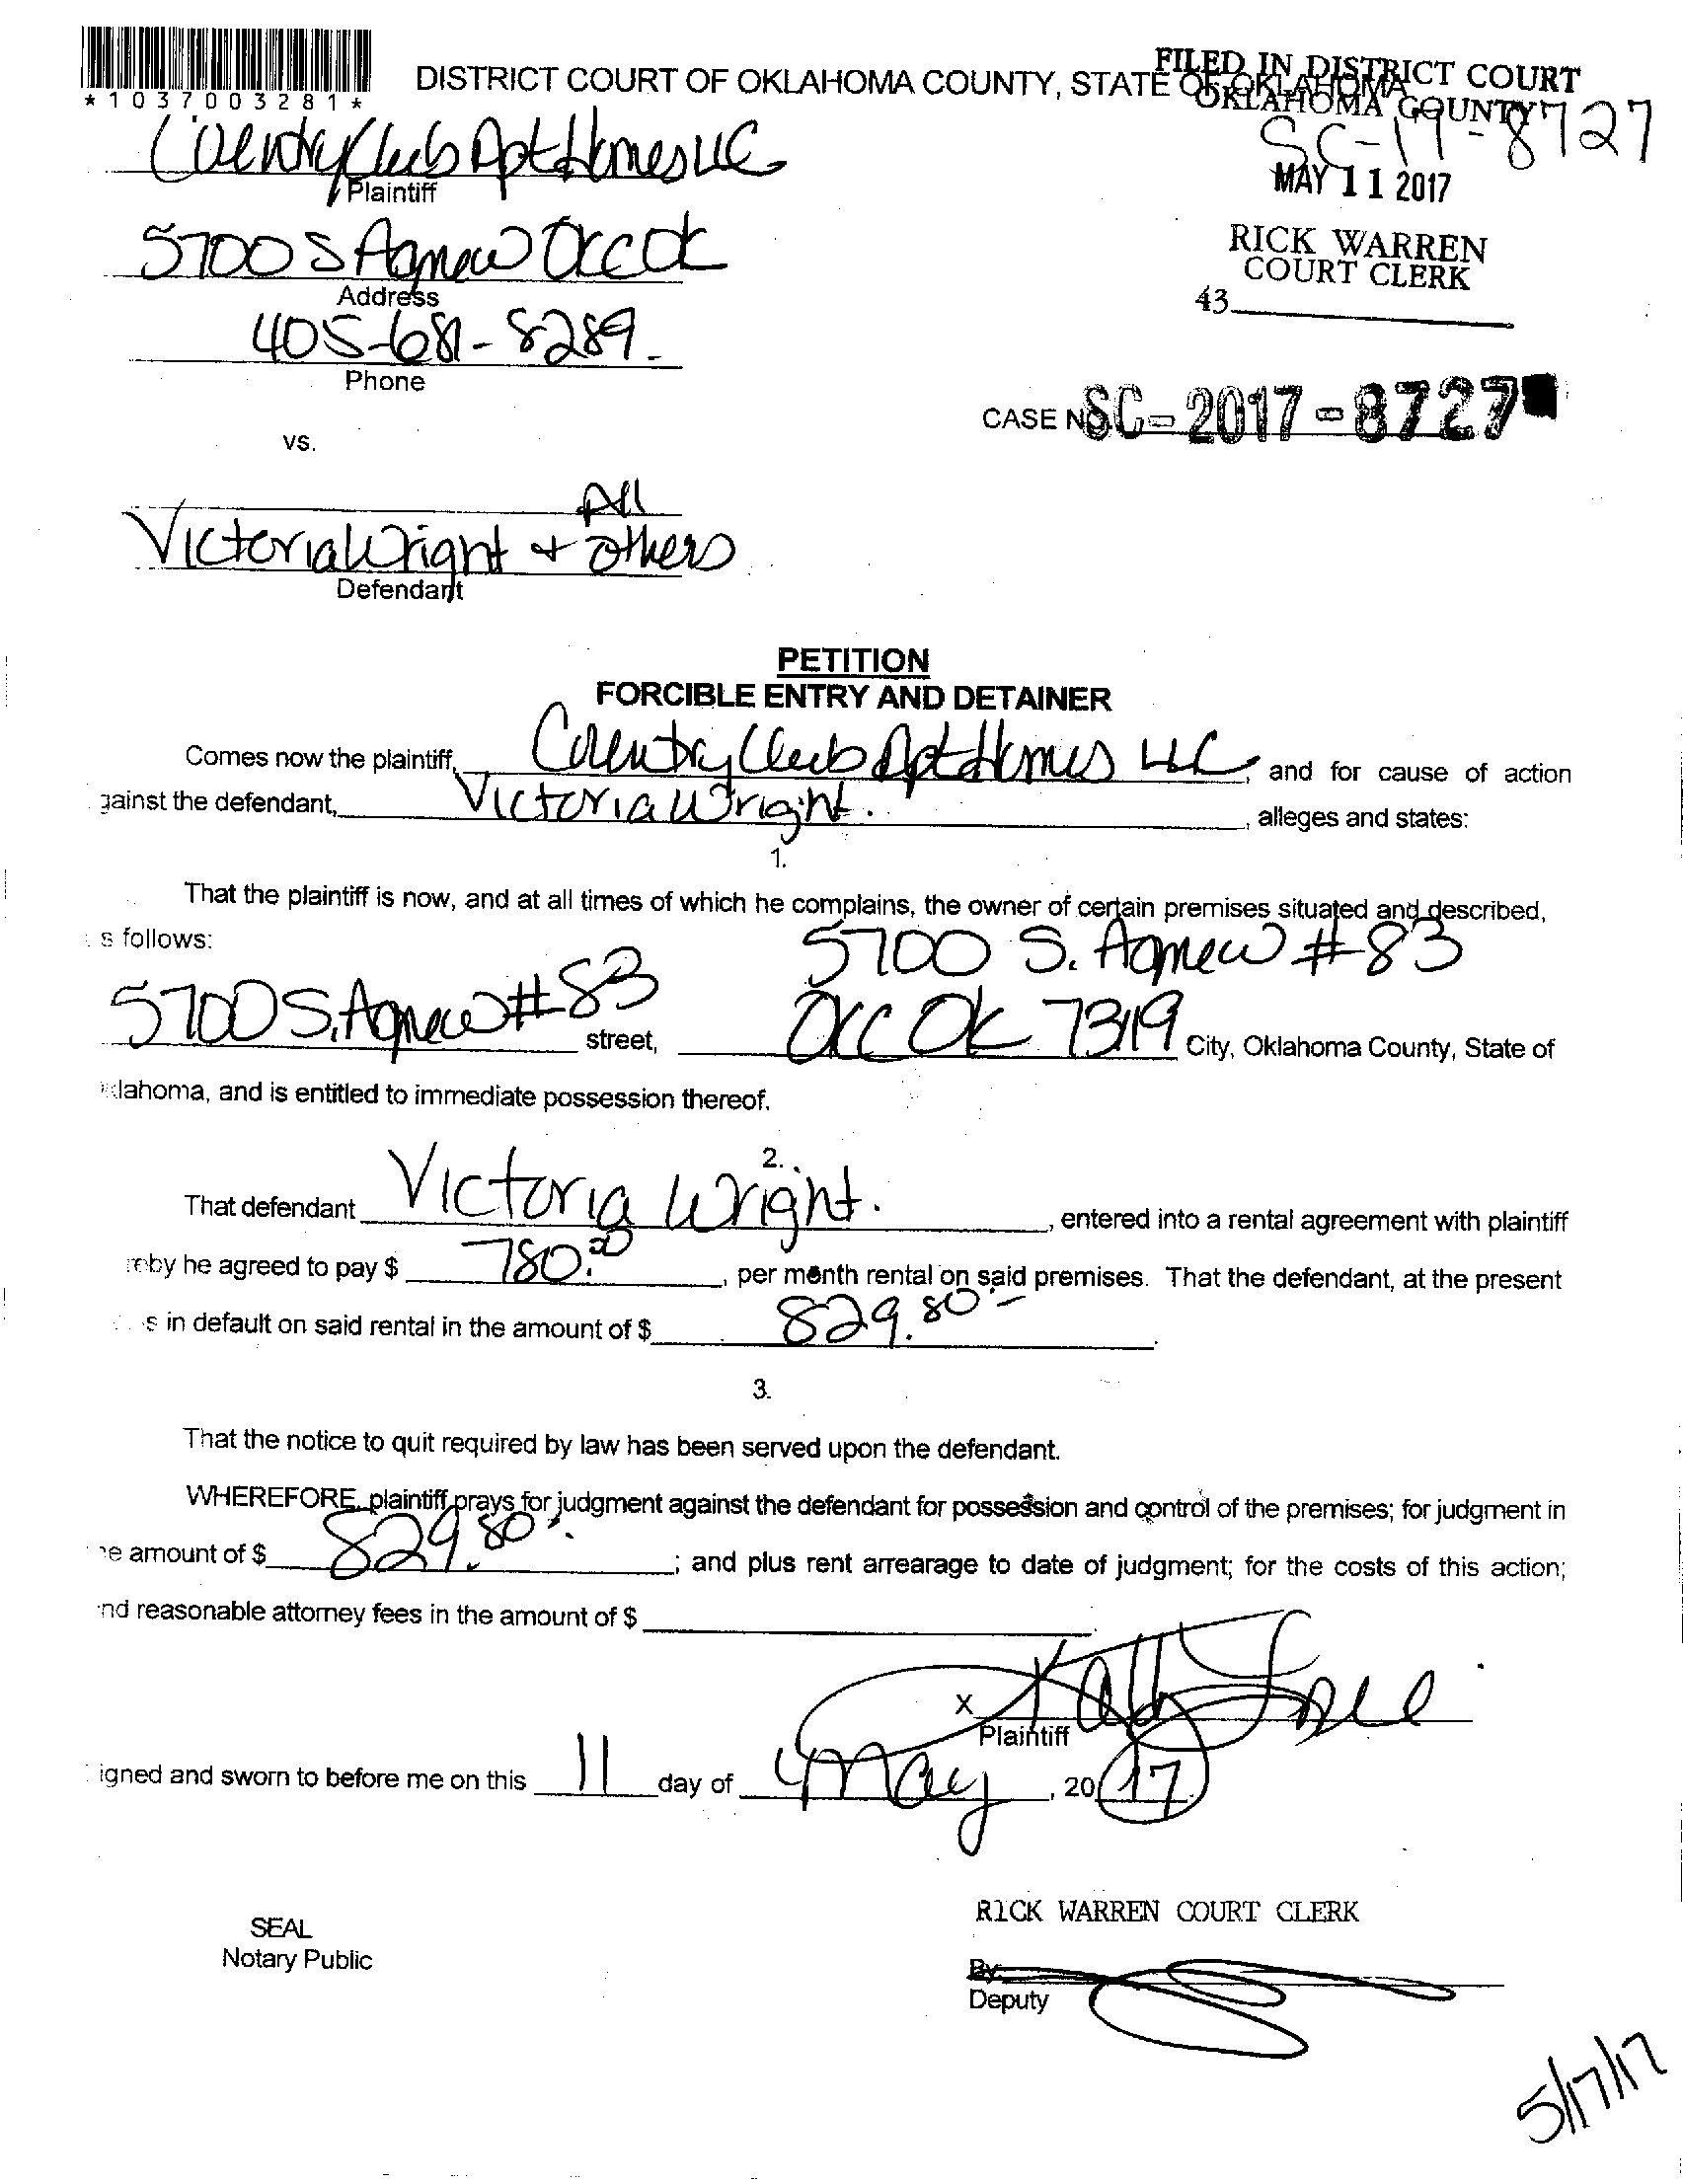 *1037003281*
DISTRICT COURT OF OKLAHOMA COUNTY, STATE OF OKLAHOMA
FILED IN DISTRICT COURT
OKLAHOMA COUNTY
SC-17-8727
MAY 11 2017
RICK WARREN
COURT CLERK
43
Country Club Apt Homes LLC
Plaintiff
5700 S Agnew OKC OK
Address
405-681-8289
Phone
CASE NO SC-2017-8727
vs.
All
Victoria Wright + others
Defendant
PETITION
FORCIBLE ENTRY AND DETAINER
Comes now the plaintiff, Country Club Apt Homes LLC, and for cause of action
gainst the defendant, Victoria Wright. , alleges and states:
1.
That the plaintiff is now, and at all times of which he complains, the owner of certain premises situated and described,
s follows: 5700 S. Agnew #83
5700 S. Agnew #83 street, OKC OK 73119 City, Oklahoma County, State of
klahoma, and is entitled to immediate possession thereof.
2.
That defendant Victoria Wright. , entered into a rental agreement with plaintiff
reby he agreed to pay $ 780.00 , per month rental on said premises. That the defendant, at the present
s in default on said rental in the amount of $ 829.80 .
3.
That the notice to quit required by law has been served upon the defendant.
WHEREFORE, plaintiff prays for judgment against the defendant for possession and control of the premises; for judgment in
e amount of $ 829.80 ; and plus rent arrearage to date of judgment; for the costs of this action;
nd reasonable attorney fees in the amount of $
X
Plaintiff
igned and sworn to before me on this 11 day of May , 2017
RICK WARREN COURT CLERK
SEAL
Notary Public
By:
Deputy
5/17/17